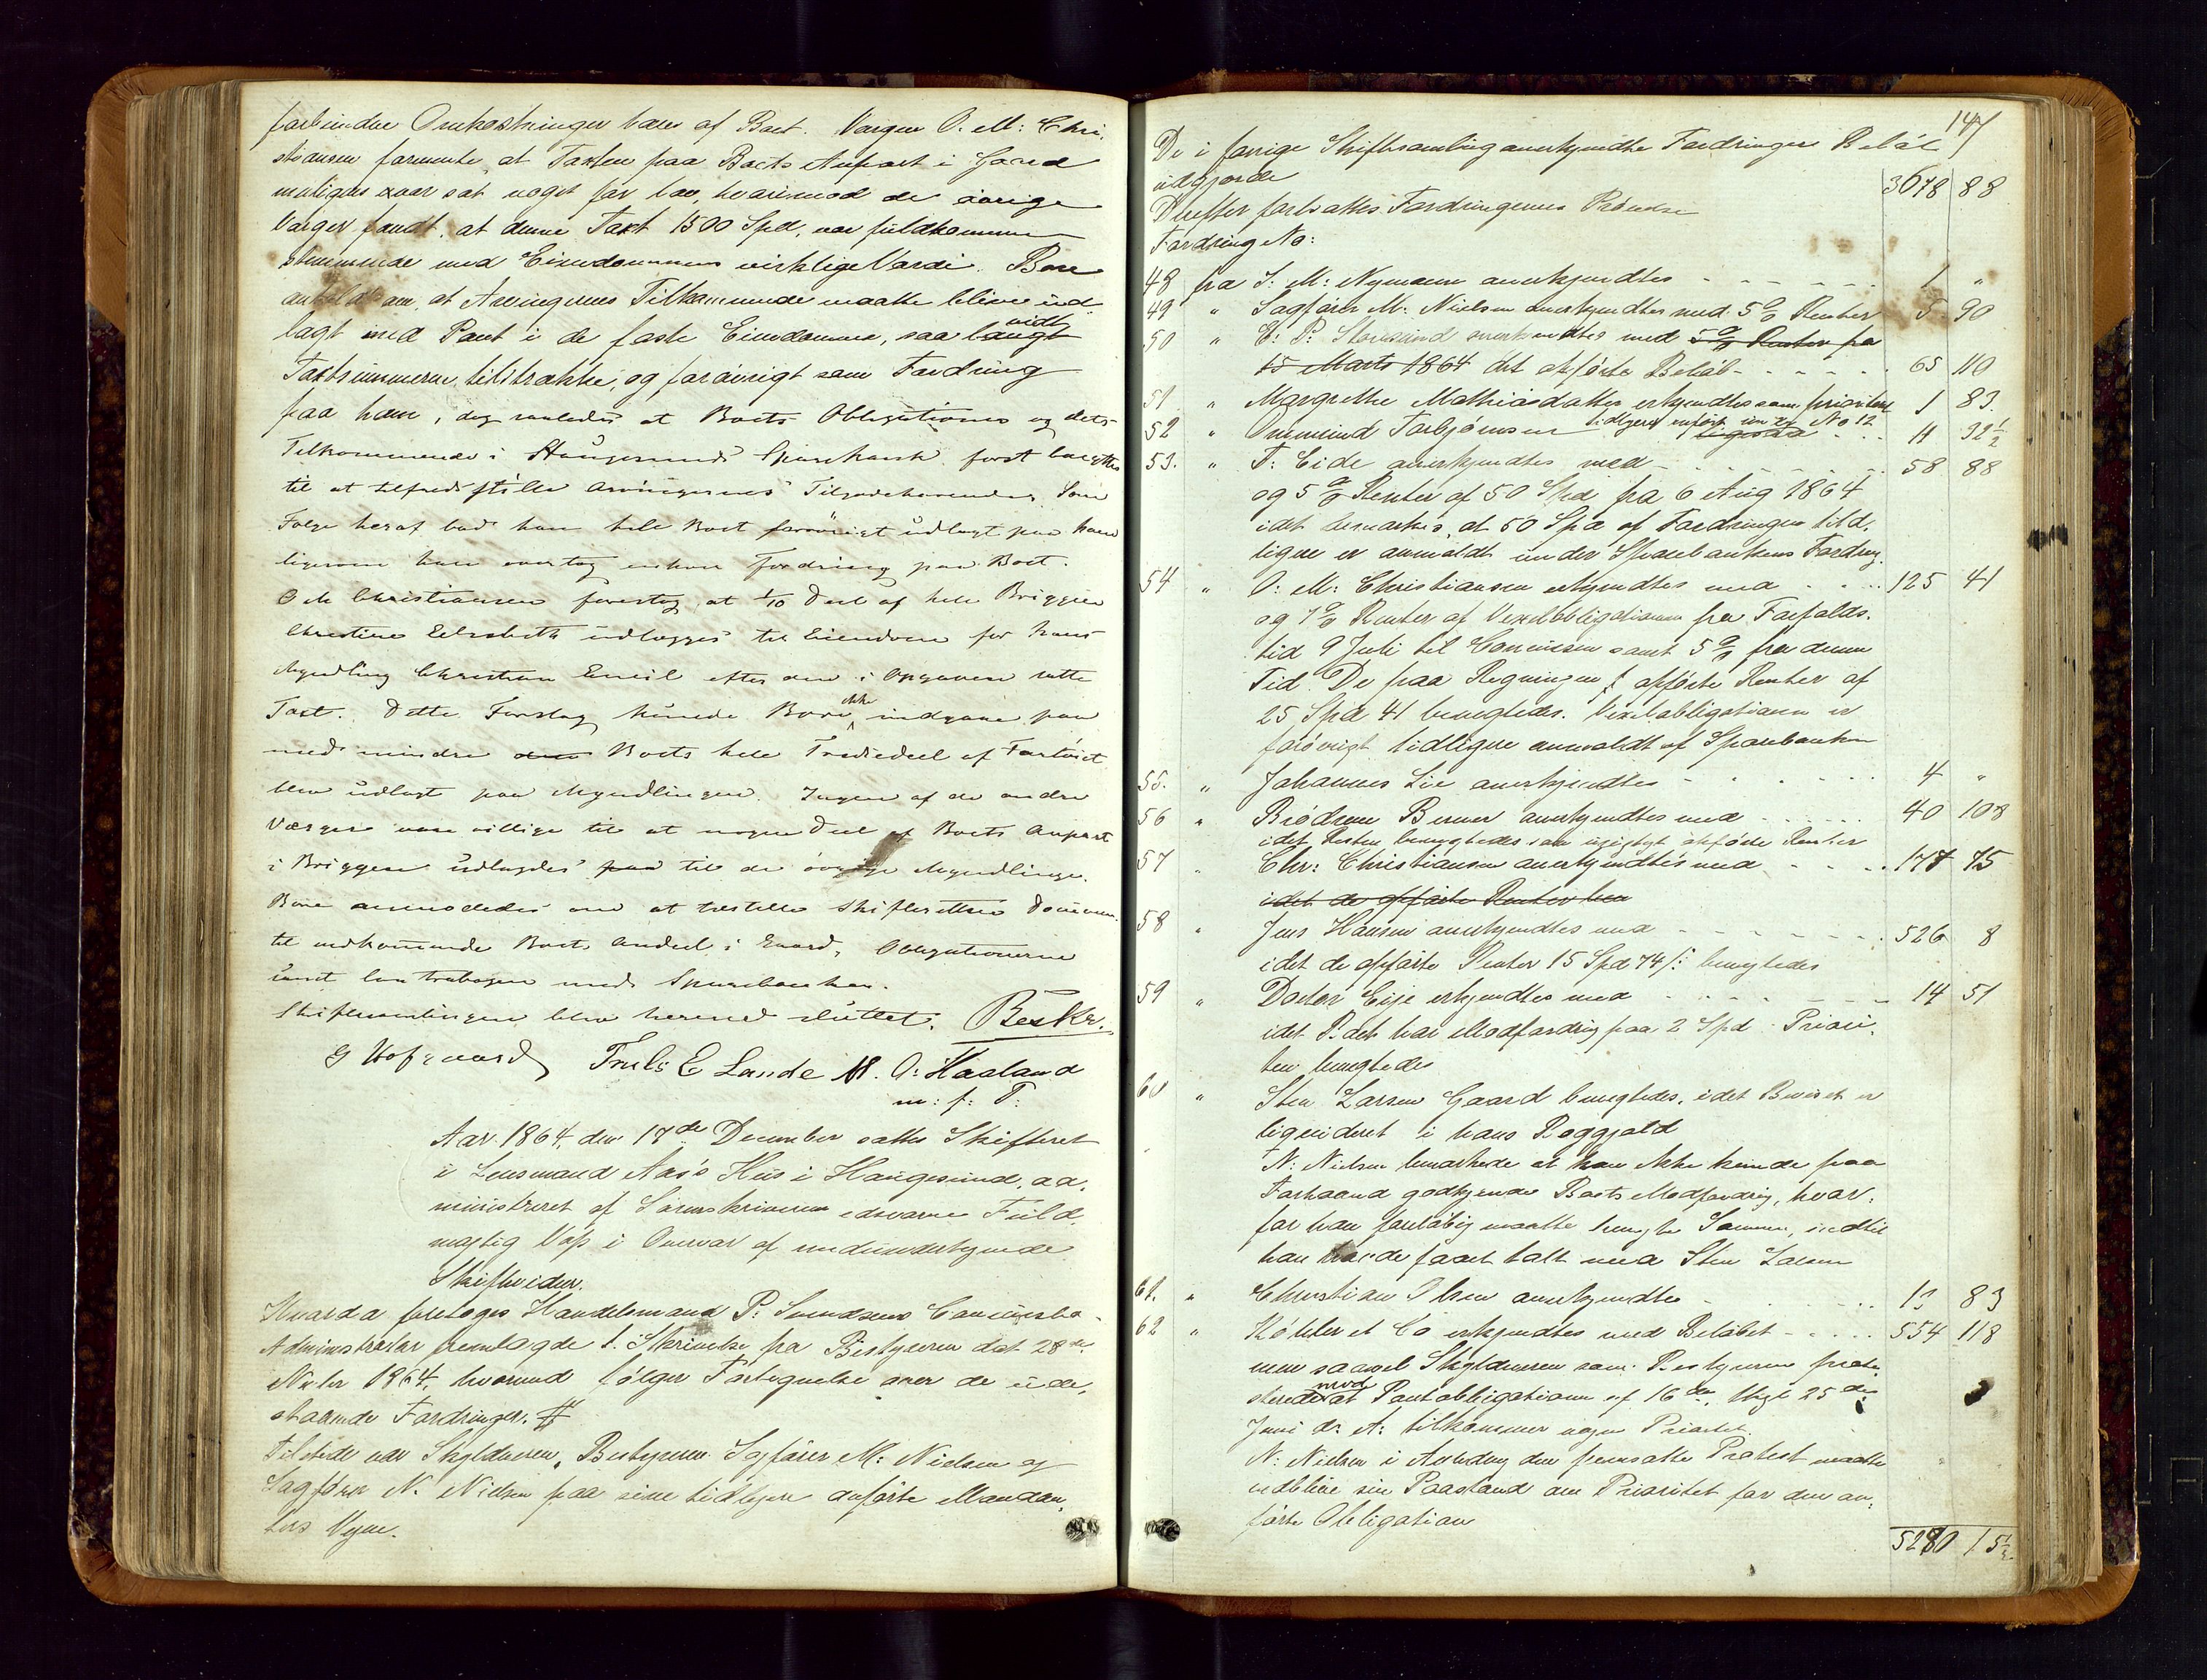 forbundne Omkostninger bæres af Boet. Værgen O. M: Chri-
stiansen formente, at Taxten paa Boets Anpart i Gaard
muligens var sat noget for lav, hvorimod de øvrige
Værger fandt, at denne Taxt 1500 Spd, var fuldkommen
stemmende med Eiendommens virkelige Værdi. Børe
anholdt om, at Arvingernes Tilkommende maatte blive ud-
lagt med Pant i de faste Eiendomme, saa vidt
Taxtsummerne tilstrække, og forøvrigt som Fordring
paa ham, dog saaledes at Boets Obligationer og dets
Tilkommende i Haugesunds Sparebank først benyttes
til at tilfredsstille Arvingernes Tilgodehavende. Som
Følge heraf bad han hele Boet forøvrigt udlagt paa ham
ligesom han overtog enhver Fordring paa Boet.
O M Christiansen foreslog, at 1/10 Deel af hele Briggen
Christine Elisabeth udlægges til Eiendom for hans
Myndling Christian Emil efter den i Opgaven satte
Taxt. Dette Forslag kunde Børe ikke indgaae paa
med mindre Boets hele Trediedeel af Fartøiet
blev udlagt paa Myndlingen. Ingen af de andre
Værger vare villige til at nogen Deel af Boets Anpart
i Briggen udlagdes til de øvrige Myndlinge.
Børe anmodedes om at tilstille Skifteretten Documen-
til vedkommende Boets Andeel i Gaard, Obligationerne
samt Contrabogen med Sparebanken.
Skiftesamlingen blev hermed sluttet. BesKr.
G Hofgaard Truls E Lande M. O: Haaland
m: f: P:
Aar 1864, den 17de December sattes Skifteret
i Lensmand Aas's Huus i Haugesund, ad-
ministreret af Sorenskriverens edsvorne Fuld-
mægtig Voss i Overvær af undertegnede
Skiftevidner.
Hvorda foretoges Handelsmand P: Svendsens Concursbo-
Administrator fremlagde 1. Skrivelse fra Bestyreren dat 28de
Novbr 1864, hvormed følger Fortegnelse over de ude-
staaende Fordringer. #
Tilstede var Skyldneren, Bestyreren Sagfører M: Nielsen og
Sagfører N. Nielsen paa sine tidligere anførte Mandan-
ters Vegne.
147
De i forrige Skiftesamling anerkjendte Fordringers Beløb
udgjorde 3678 88
Derefter fortsattes Fordringernes Prøvelse
Fordring No:
48 fra S. M: Nymann anerkjendtes - - - 1 "
49 " Sagfører M: Nielsen anerkjendtes med 5% Renter 5 90
50 " E: P: Storesund anerkjendtes med 5% Renter fra
15 Marts 1864 det opførte Beløb - - - 65 110
51 " Margrethe Mathiasdatter erkjendtes som prioriteret 1 83.
52 " Ommund Torbjørnsen tidligere opført under No 12 ligesaa - - 11 32½
53. " T: Eide anerkjendtes med - - - 58 88
og 5% Renter af 50 Spd fra 6 Aug 1864
idet bemærkes, at 50 Spd af Fordringen tid-
ligere er anmeldt under Sparebankens Fordring.
54 " O: M: Christiansen erkjendtes med - - - 125 41
og % Renter af Vexelobligationen fra Forfalds-
tid 9 Juli til Concursen samt 5% fra denne
Tid. De paa Regningen opførte Renter af
25 Spd 41 benegtedes. Vexelobligationen er
forøvrigt tidligere anmeldt af Sparebanken
55. " Johannes Lie anerkjendtes - - - 4 "
56 " Brødrene Berner anerkjendtes med - - - 40 108
idet Resten benegtedes som urigtigt opførte Renter
57 " Chr: Christiansen anerkjendtes med - - - 177 75
idet de opførte Renter ben
58 " Jens Hansen anerkjendtes med - - - 526 8
idet de opførte Renter 15 Spd 74 s: benegtedes
59 " Doctor Eije erkjendtes med - - - 14 51
idet P. dets har Modfordring paa 2 Spd. Priori-
ten benegtedes
60 " Sten Larsen Gaard benegtedes, idet Beviset er
liqvideret i hans Bøggjæld
N: Nielsen bemærkede at han ikke kunde paa
Forhaand godkjende Boets Modfordring, hvor-
for han foreløbig maatte benegte Samme, indtil
han havde faaet talt med Sten Larsen
61. " Christian Olsen anerkjendtes - - - 13 83
62 " Köhler et Co erkjendtes med Beløbet - - - 554 118
men saavel Skyldneren som Bestyreren prote-
sterede mod at Pantobligationen af 16de, thgl 25de
Juni d: A: tilkommer nogen Prioritet.
N: Nielsen i Anledning den fremsatte Protest maatte
vedblive sin Paastand om Prioritet for den an-
førte Obligation
5280 15½